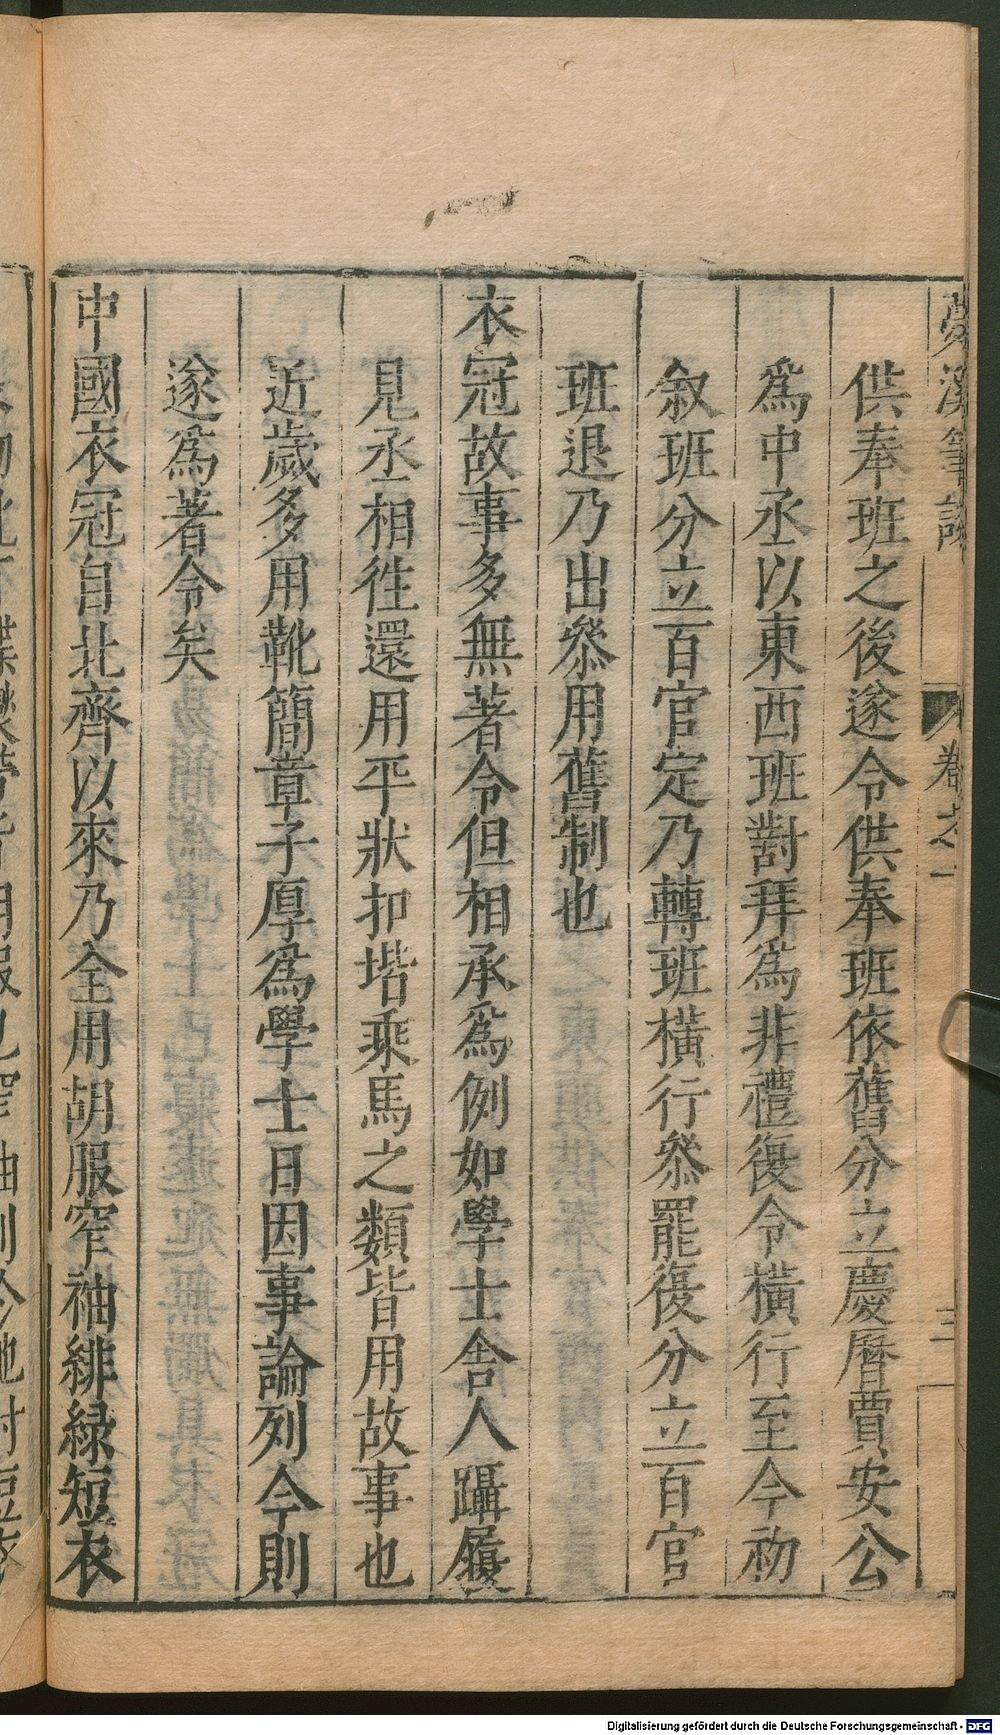 夢溪筆談 卷之一 三
供奉班之後遂令供奉班依舊分立慶曆賈安公
爲中丞以東西班對拜爲非禮復令橫行至今初
叙班分立百官定乃轉班橫行叅罷復分立百官
班退乃出叅用舊制也
衣冠故事多無著令但相承爲例如學士舍人躡履
見丞相徃還用平狀扣堦乘馬之類皆用故事也
近歲多用靴簡章子厚爲學士日因事論列今則
遂爲著令矣
中國衣冠自北齊以來乃全用胡服窄袖緋緑短衣
Digitalisierung gefördert durch die Deutsche Forschungsgemeinschaft - DFG